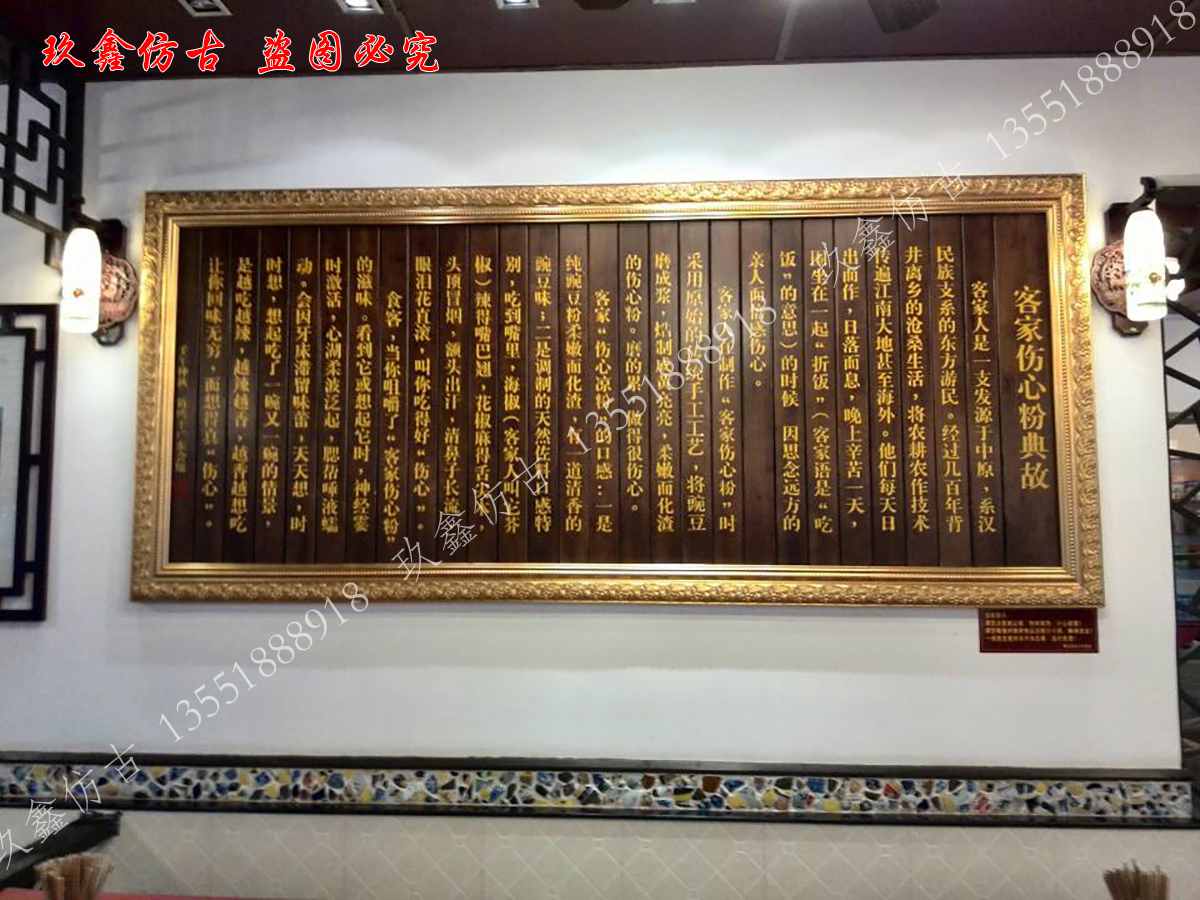 玖鑫仿古 盗图必究
客家伤心粉典故
客家人是一支发源于中原，系汉
民族支系的东方游民。经过几百年背
井离乡的沧桑生活，将农耕农作技术
传遍江南大地甚至海外。他们每天日
出而作，日落而息，晚上辛苦一天，
围坐在一起“折饭”（客家语是“吃
饭”的意思）的时候 因思念远方的
亲人而感伤心。
客家人制作“客家伤心粉”时
采用原始的纯手工工艺，将豌豆
磨成浆，精制成亮亮，柔嫩而化渣
的伤心粉。磨的累，做得很伤心。
客家“伤心凉粉”的口感：一是
纯豌豆粉柔嫩而化渣，有一道清香的
豌豆味；二是调制的天然佐料口感特
别，吃到嘴里，海椒（客家人叫
椒）辣得嘴巴翘，花椒麻得舌
头顶冒烟，额头出汗，清鼻子长流
眼泪花直滚，叫你吃得好“伤心”。
食客，当你咀嚼了“客家伤心粉”
的滋味。看到它或想起它时，神经霎
时激活，心湖柔波泛起，腮帮唾液蠕
动。会因牙床滞留味蕾，天天想，时
时想，想起吃了一碗又一碗的情景，
是越吃越辣，越辣越香，越香越想吃
让你回味无穷，而想得真“伤心”。
玖鑫仿古 13551888918
玖鑫仿古 13551888918
玖鑫仿古 13551888918